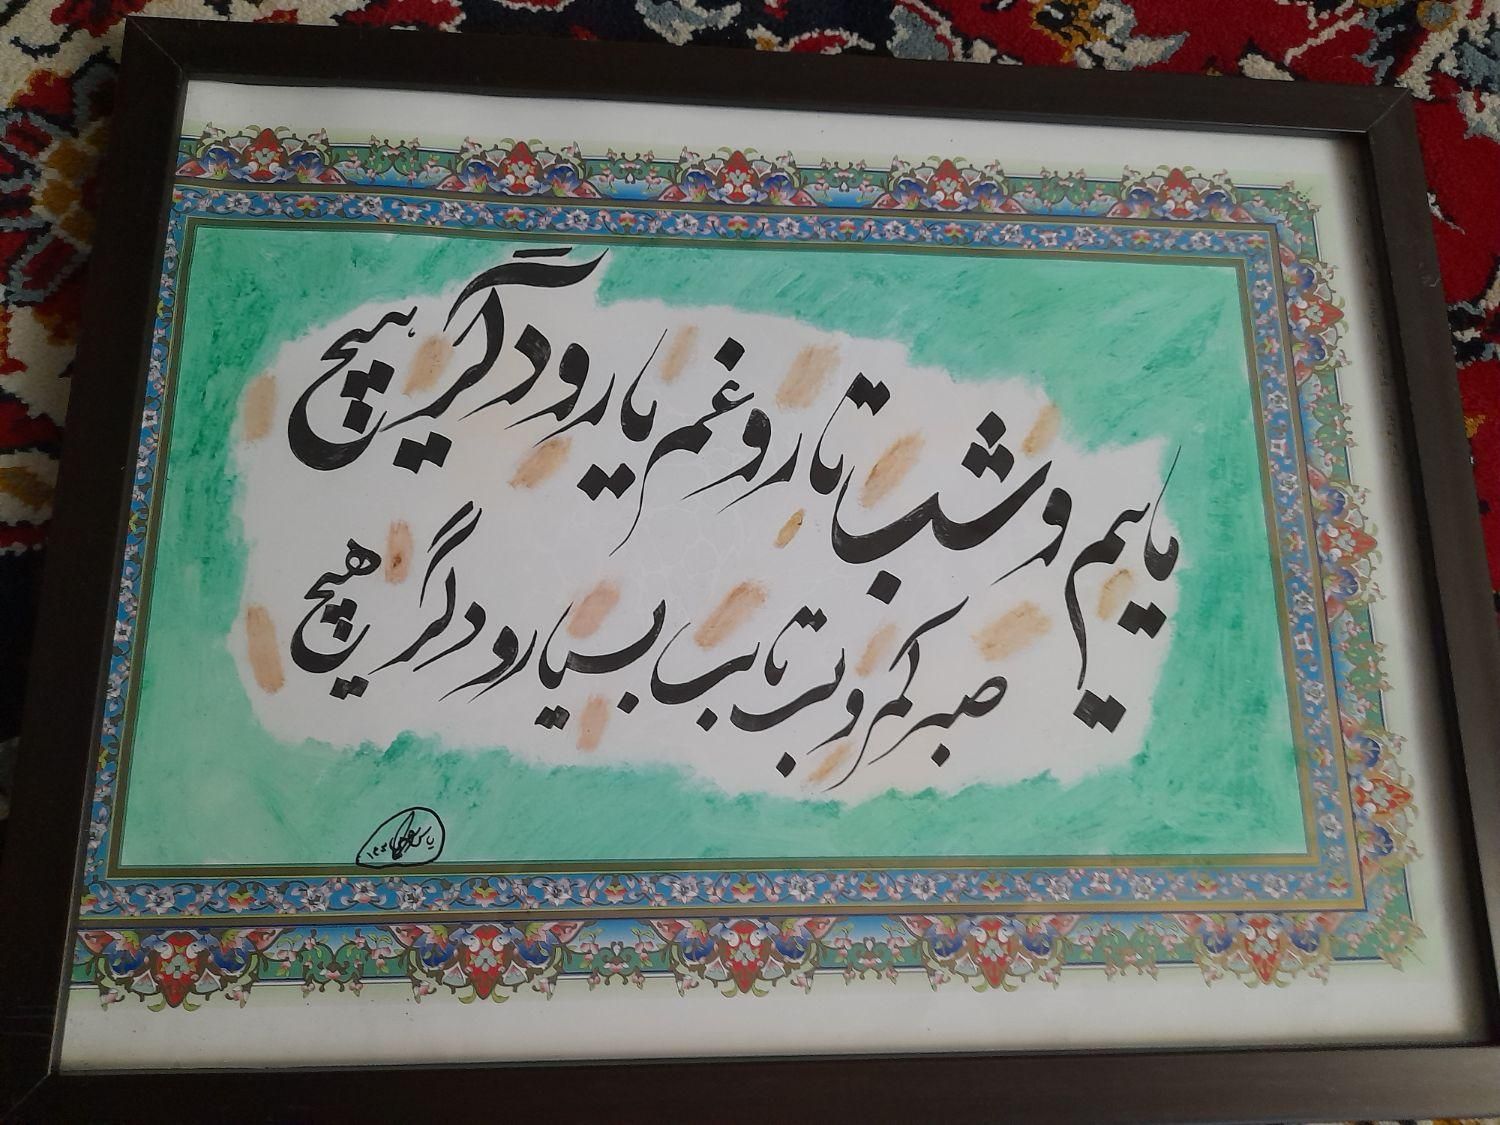 ماییم و شب تار و غم یار و دگر هیچ
صبر کم و بی تابی بسیار و دگر هیچ